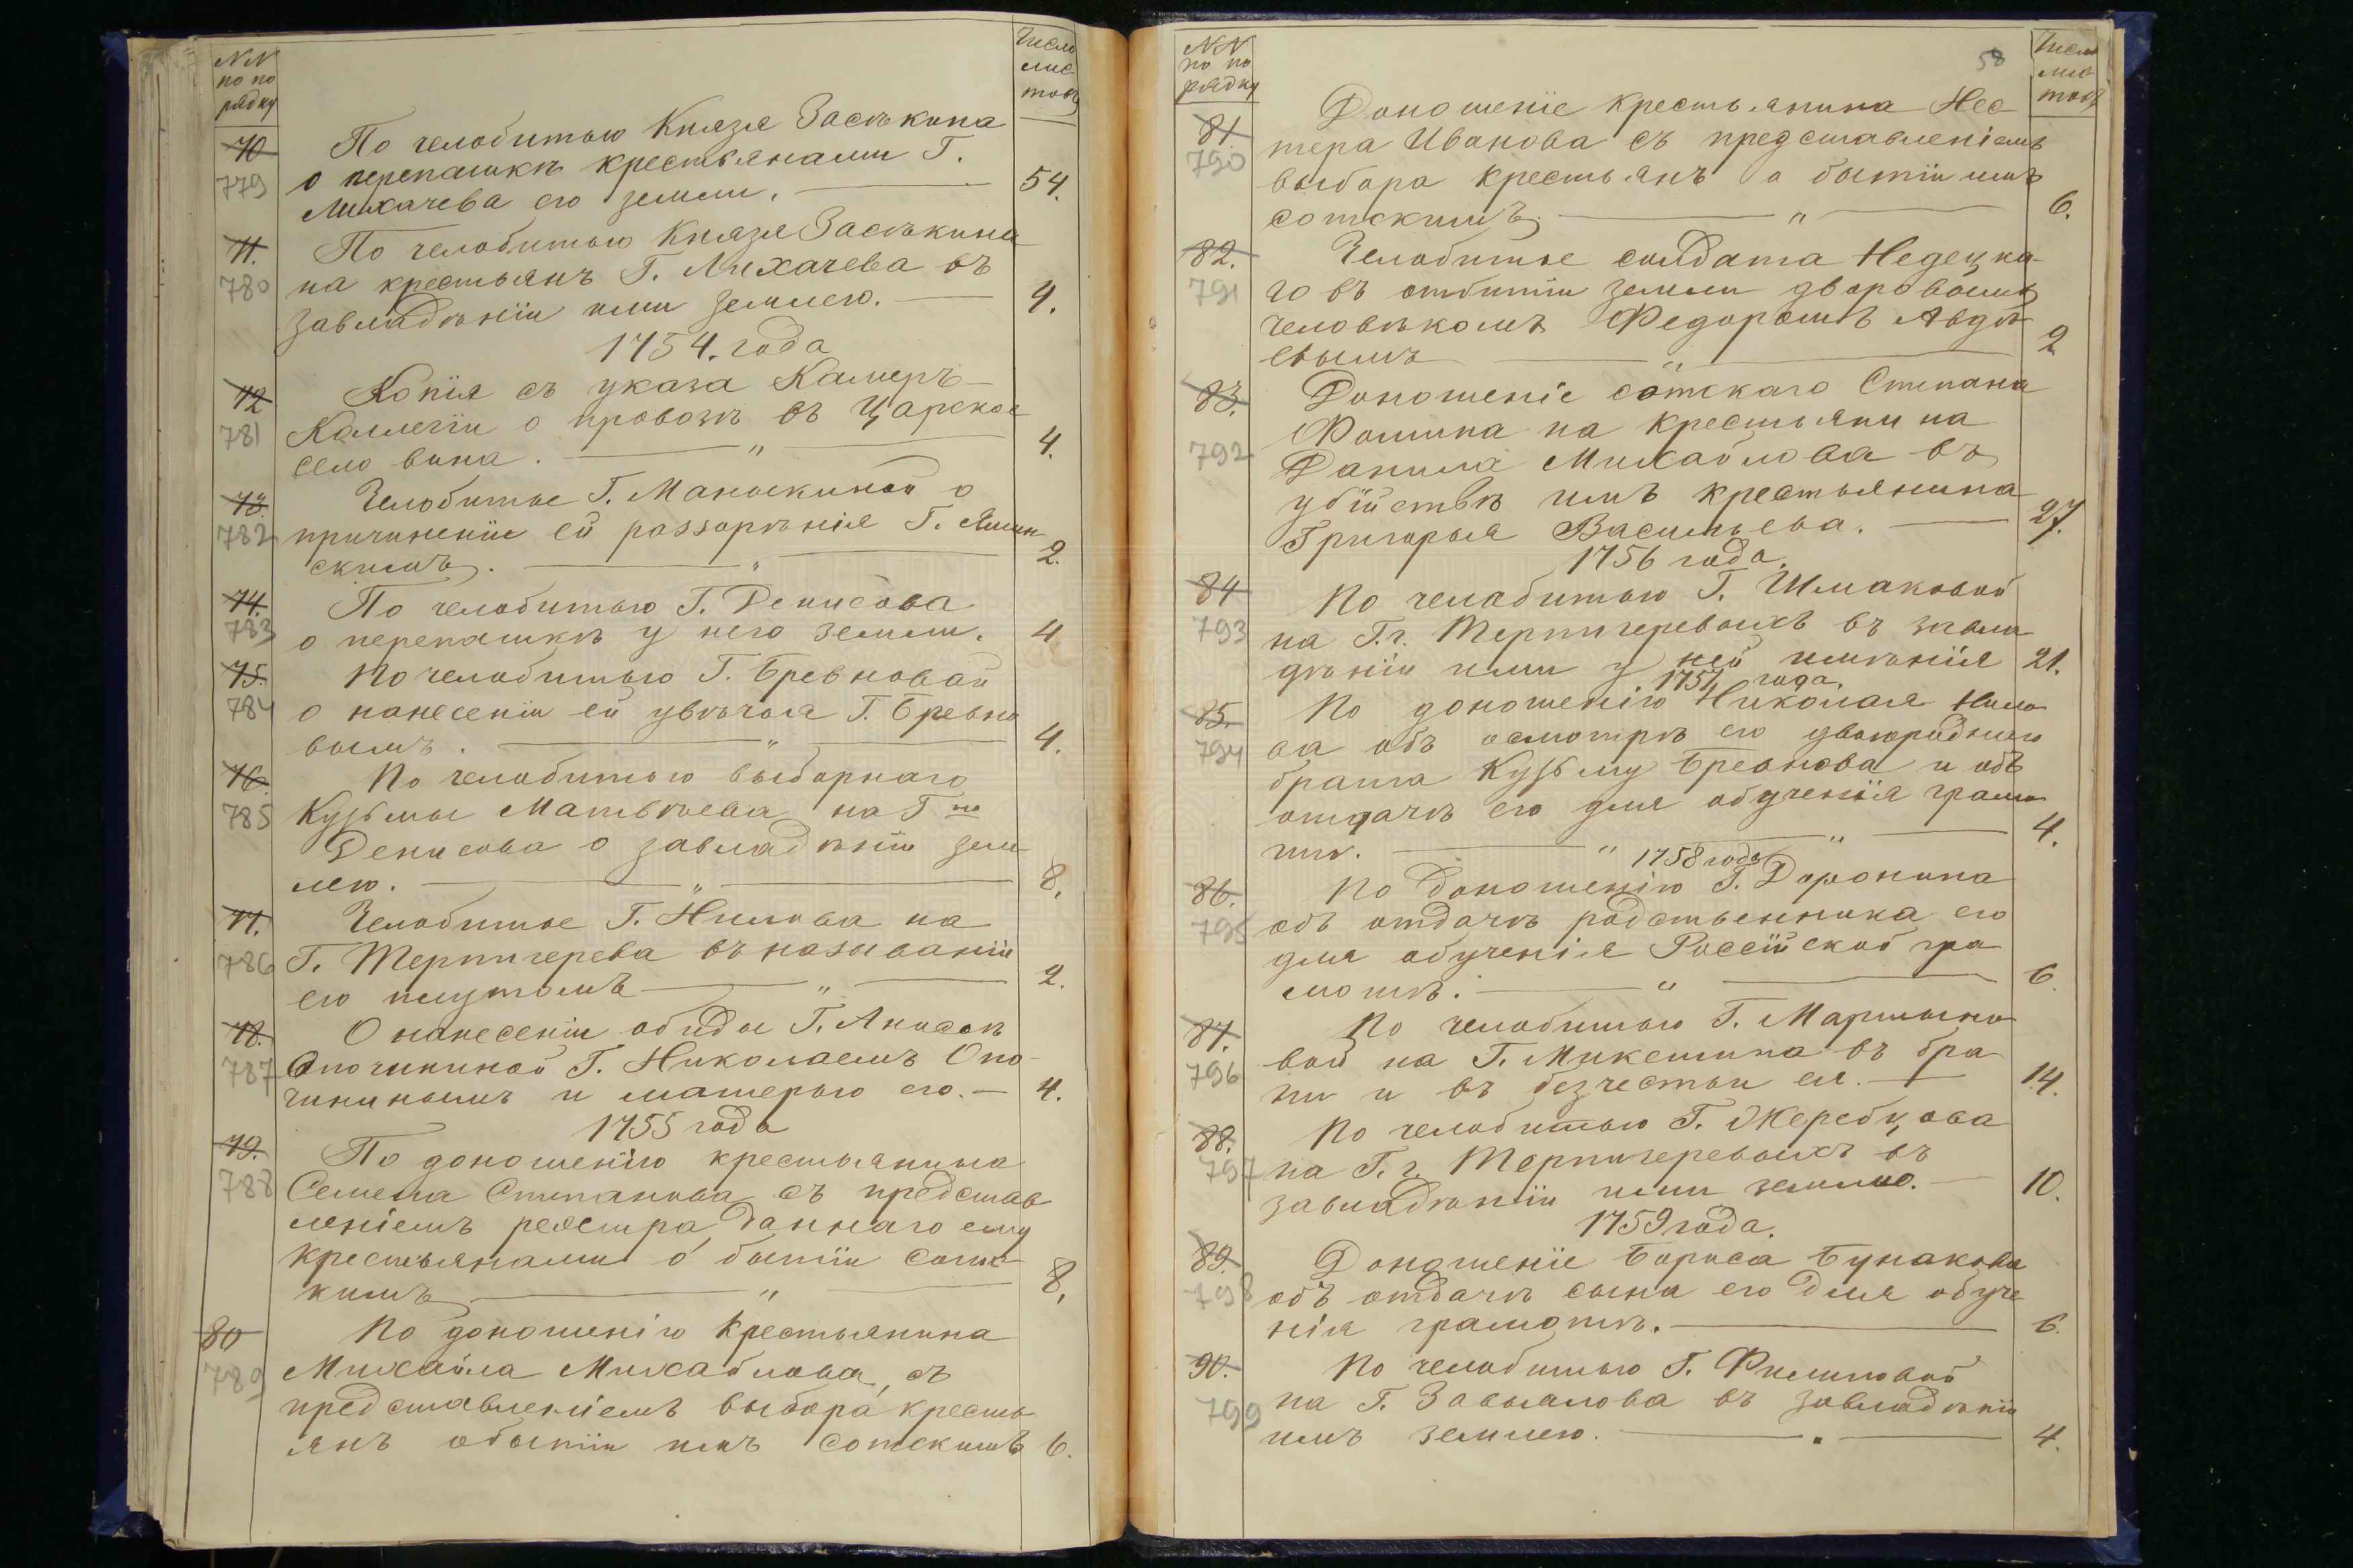 NN
по по
рядку
Число
лис
товъ
70
779
По челобитью Князя Засѣкина
о перепашкѣ крестьянами Г.
Лихачева его земли.
54.
71.
780
По челобитью Князя Засѣкина
на крестьянъ Г. Лихачева въ
завладѣніи ими землею.
4.
1754. года
72
781
Копія съ указа Камеръ-
Коллегіи о провозѣ въ Царское
село вина. "
4.
73.
782
Челобитье Г. Маноскиной о
причиненіи ей раззорѣнія Г. Ямин
скимъ. "
2.
74.
783
По челобитью Г. Денисова
о перепашкѣ у него земли.
4
75.
784
По челобитью Г. Бревновой
о нанесеніи ей увѣчья Г. Бревно
вымъ. "
4.
76.
785
По челобитью выборнаго
Кузьмы Матвѣева на Г на
Денисова о завладѣніи зем
лею. "
8.
77.
786
Челобитье Г. Нилова на
Г. Терпигерева въ называніи
его плутомъ "
2.
78.
787
О нанесеніи обиды Г. Анисьѣ
Опочининой Г. Николаемъ Опо-
чининымъ и матерью его.
4.
1755 года
79.
788
По доношенію крестьянина
Семена Степанова съ представ
леніемъ реестра, даннаго ему
крестьянами о бытіи сотс
кимъ "
8.
80
789
По доношенію Крестьянина
Михайла Михайлова, съ
представленіемъ выбора кресть
янъ о бытіи имъ сотскимъ
6.
NN
по по
рядку
58
Число
лис
товъ
81.
790
Доношеніе крестьянина Нес-
тера Иванова съ представленіемъ
выбора крестьянъ о бытіи имъ
сотскимъ. "
6.
82.
791
Челобитье солдата Недецка-
го въ отбитіи земли дворовымъ
человѣкомъ Федоромъ Авдѣ
евымъ "
2
83.
792
Доношеніе сотскаго Степана
Фомина на крестьянина
Данила Михайлова въ
убійствѣ имъ крестьянина
Григорья Васильева.
27.
1756 года.
84
793
По челобитью Г. Шмаковой
на Г.г. Терпигеревыхъ въ завла
дѣніи ими у ней имѣнія
21.
1757 года.
85.
794
По доношенію Николая Нило
ва объ осмотрѣ его двоюроднаго
брата Кузьму Бревнова и объ
отдачѣ его для обученія грамо
тѣ. " "
4.
1758 года
86.
795
По доношенію Г. Доронина
объ отдачѣ родственника его
для обученія Россійской гра
мотѣ. "
6
87.
796
По челобитью Г. Мартыно
вой на Г. Микешина въ бра
ни и въ безчестьи ея.
14.
88.
797
По челобитью Г. Жеребцова
на Г.г. Терпигеревыхъ въ
завладѣніи ими землею.
10.
1759 года.
89.
798
Доношеніе Бориса Бунакова
объ отдачѣ сына его для обуче
нія грамотѣ.
6.
90.
799
По челобитью Г. Филиповой
на Г. Завьялова въ завладѣніи
имъ землею.
4.